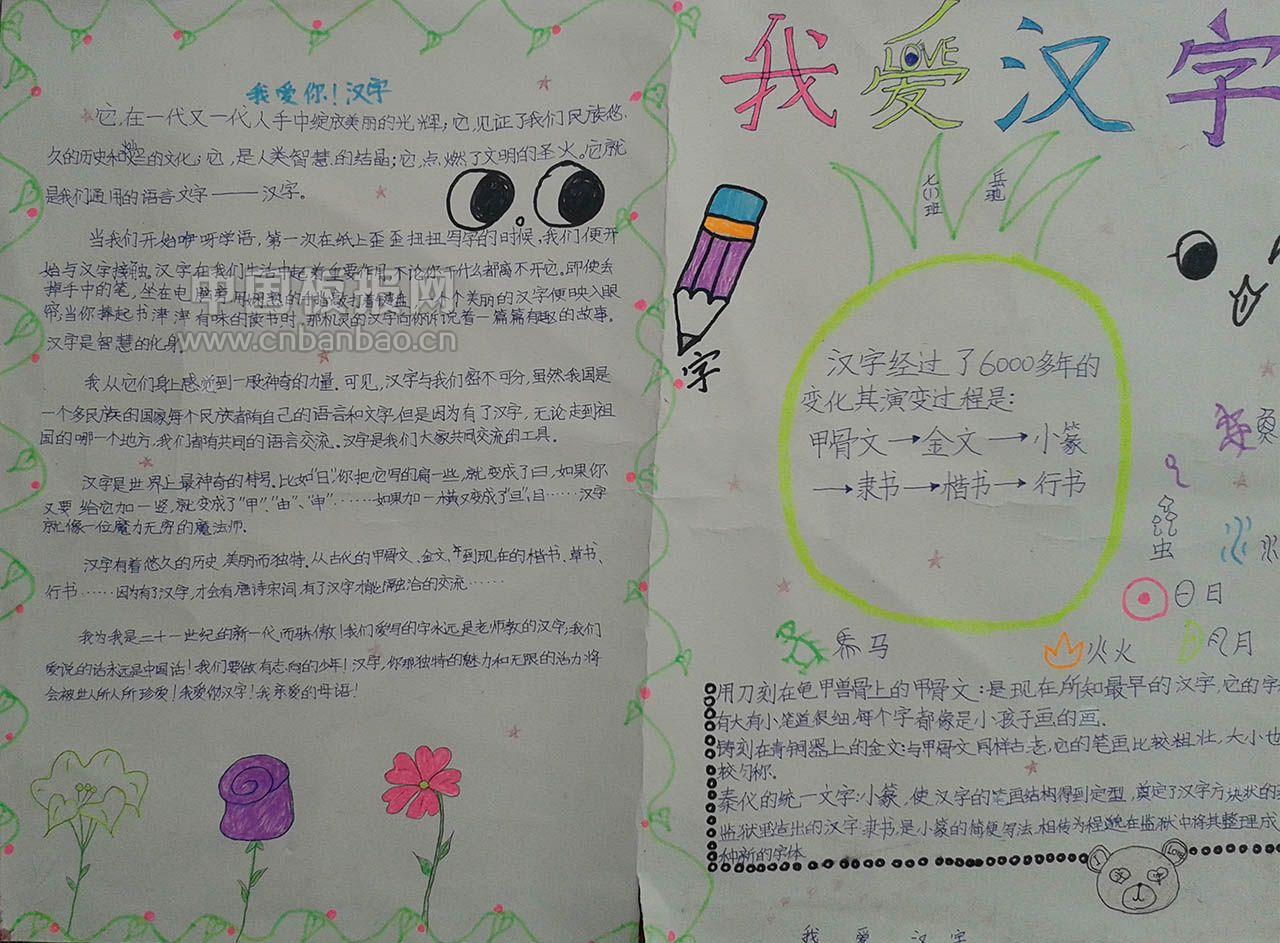 我爱你！汉字
它,在一代又一代人手中绽放美丽的光辉；它,见证了我们民族悠
久的历史和的文化；它,是人类智慧的结晶；它,点燃了文明的圣火。它就
是我们通用的语言文字——汉字。
当我们开始咿呀学语,第一次在纸上歪歪扭扭写字的时候,我们便开
始与汉字接触。汉字在我们生活中起着重要作用,不论你干什么都离不开它。即使丢
掉手中的笔,坐在电脑旁用娴熟的手指敲打着键盘,一个个美丽的汉字便映入眼
帘,当你捧起书津津有味的读书时,那机灵的汉字向你诉说着一篇篇有趣的故事。
汉字是智慧的化身。
我从它们身上感觉到一股神奇的力量.可见,汉字与我们密不可分,虽然我国是
一个多民族的国家每个民族都有自己的语言和文字,但是因为有了汉字,无论走到祖
国的哪一个地方,我们都有共同的语言交流。汉字是我们大家共同交流的工具。
汉字是世界上最神奇的精灵.比如"日",你把它写的扁一些,就变成了曰,如果你
又要给它加一竖,就变成了"甲"、"由"、"申"……如果加一横又变成了"旦",目……汉字
就像一位魔力无穷的魔法师.
汉字有着悠久的历史,美丽而独特.从古代的甲骨文、金文,到现在的楷书、草书、
行书……因为有了汉字,才会有唐诗宋词,有了汉字才能融洽的交流……
我为我是二十一世纪的新一代,而骄傲！我们爱写的字永远是老师教的汉字；我们
爱说的话永远是中国话！我们要做有志向的少年！汉字,你那独特的魅力和无限的活力将
会被世人所人所珍爱！我爱你汉字！我亲爱的母语！
中国板报网
www.cnbanbao.cn
我爱汉字
LOVE
七(1)班
字
汉字经过了6000多年的
变化其,演变过程是：
甲骨文→金文→小篆
→隶书→楷书→行书
虫
日日
马
火火
月
用刀刻在龟甲兽骨上的甲骨文：是现在所知最早的汉字,它的字
有大有小笔道很细,每个字都像是小孩子画的画.
铸刻在青铜器上的金文:与甲骨文同样古老,它的笔画比较粗壮,大小也
较匀称.
秦代的统一文字:小篆,使汉字的笔画结构得到定型,奠定了汉字方块状的
监狱里造出的汉字:隶书,是小篆的简便写法,相传为程邈在监狱中将其整理成
种新的字体
I
Love
我爱汉字